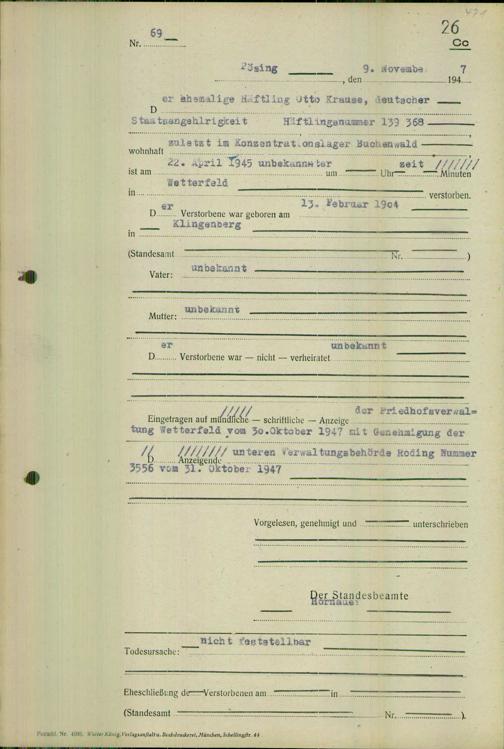 26
Cc
Nr. 69
Pösing, den 9. November 1947
Der ehemalige Häftling Otto Krause, deutscher
Staatsangehlrigkeit Häftlingsnummer 139 368
wohnhaft zuletzt im Konzentrationslager Buchenwald
ist am 22. April 1945 unbekannter um Uhr zeit Minuten
in Wetterfeld verstorben.
Der Verstorbene war geboren am 13. Februar 1904
in Klingenberg
(Standesamt Nr. )
Vater: unbekannt
Mutter: unbekannt
Der Verstorbene war — nicht — verheiratet unbekannt
Eingetragen auf mündliche — schriftliche — Anzeige der Friedhofsverwal=
tung Wetterfeld vom 30.Oktober 1947 mit Genehmigung der
D Anzeigende unteren Verwaltungsbehörde Roding Nummer
3556 vom 31. Oktober 1947
Vorgelesen, genehmigt und unterschrieben
Der Standesbeamte
Todesursache: nicht feststellbar
Eheschließung de Verstorbenen am in
(Standesamt Nr. ).
Verlagsanstalt u. Buchdruckerei, München, Schellingstr. 44